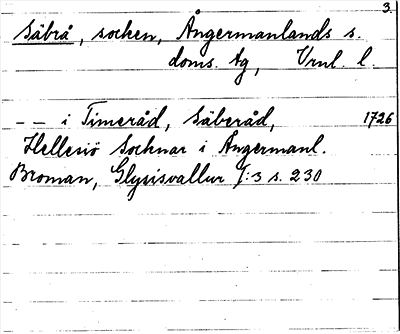 3.
Säbrå, socken, Ångermanlands s.
doms. tg, Vrnl. l.
-- i Timeråd, Säberåd, 1726
Hellesiö Socknar i Ångermanl.
Broman, Glysisvallur I:3 s. 230